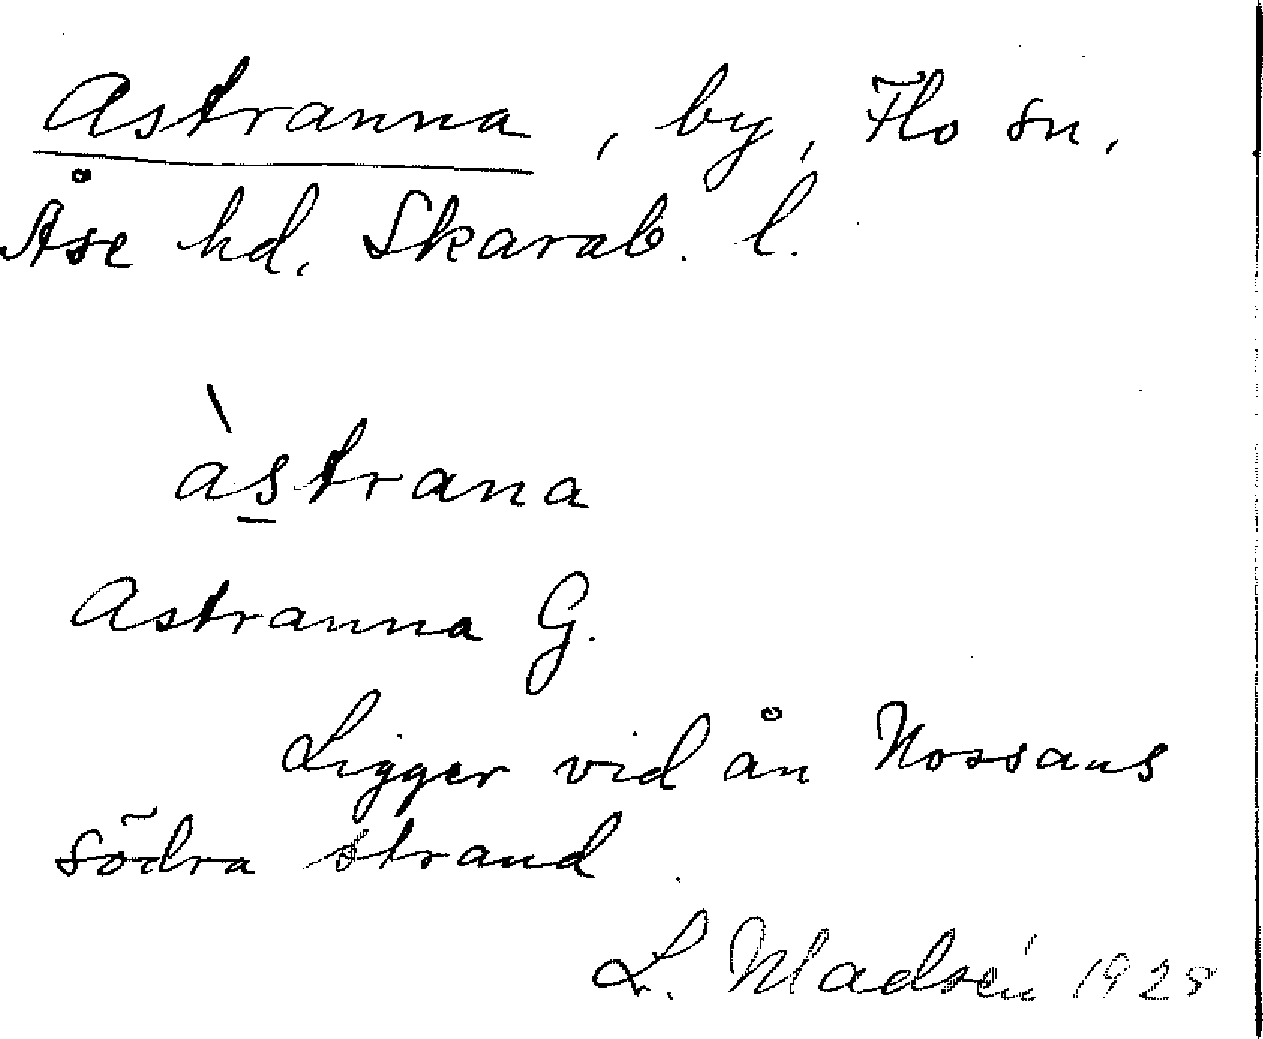 Astranna, by, Flo sn.
Åse hd. Skarab. l.
àstrana
Astranna G.
Ligger vid ån Nossans
södra strand.
L. Madsén 1928